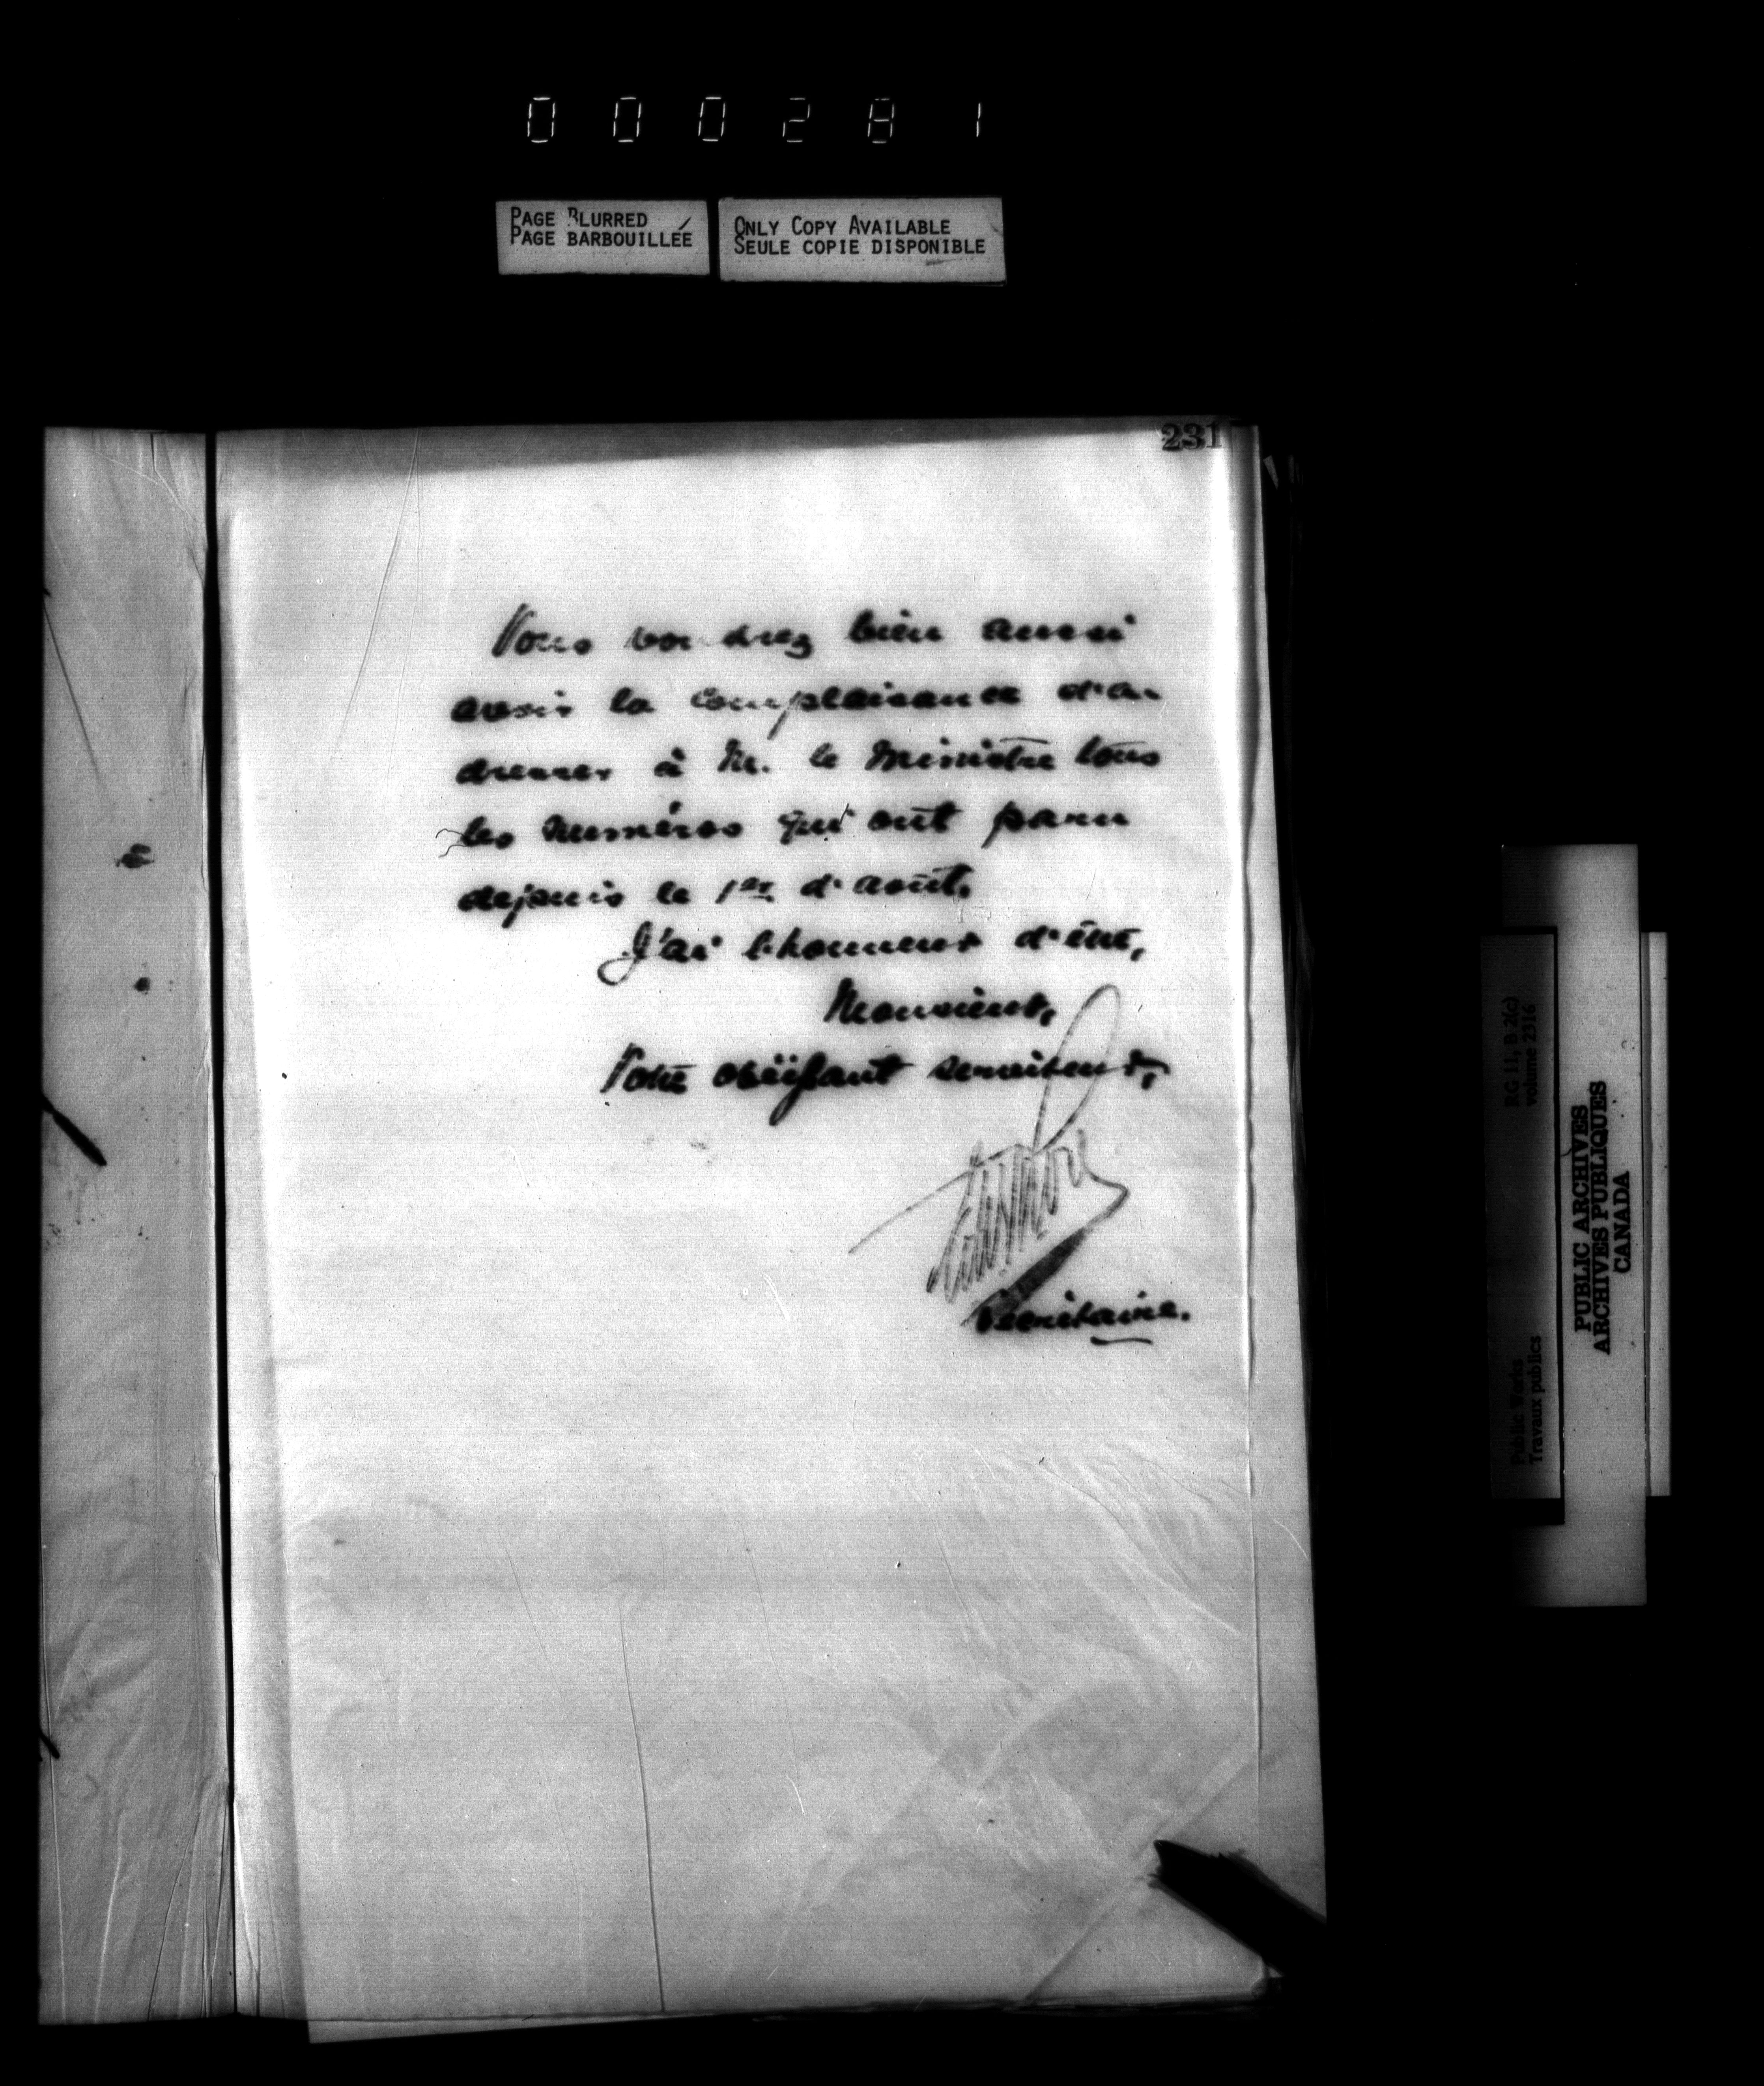 000281
PAGE BLURRED
PAGE BARBOUILLÉE
ONLY COPY AVAILABLE
SEULE COPIE DISPONIBLE
231
Vous voudrez bien aussi
avoir la complaisance d'a-
dresser à M. le Ministre tous
les numéros qui ont paru
depuis le 1er d'août.
J'ai l'honneur d'être,
Monsieur,
Votre obéissant serviteur,
Secrétaire.
RG 11, B 2(c)
volume 2316
Public Works
Travaux publics
PUBLIC ARCHIVES
ARCHIVES PUBLIQUES
CANADA